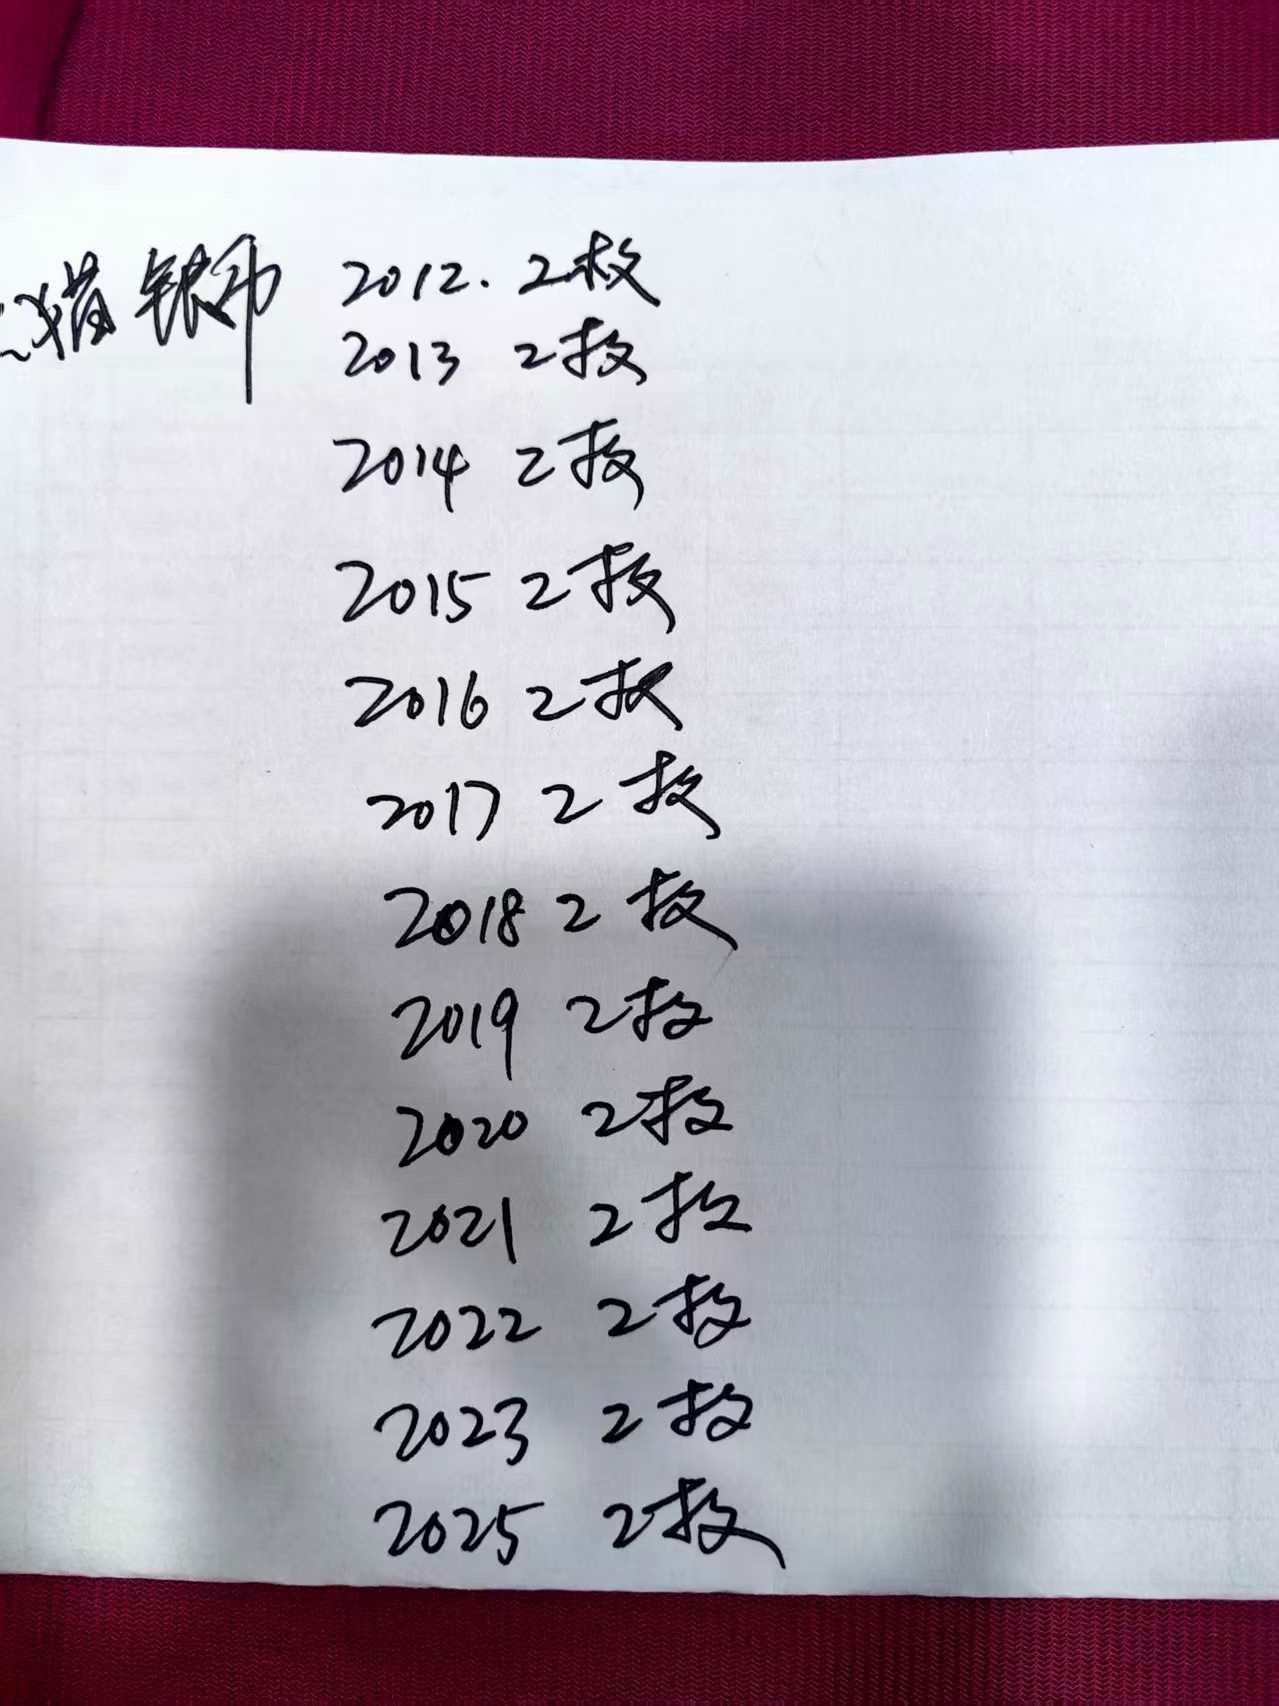 猫银币 2012. 2枚
2013 2枚
2014 2枚
2015 2枚
2016 2枚
2017 2枚
2018 2枚
2019 2枚
2020 2枚
2021 2枚
2022 2枚
2023 2枚
2025 2枚